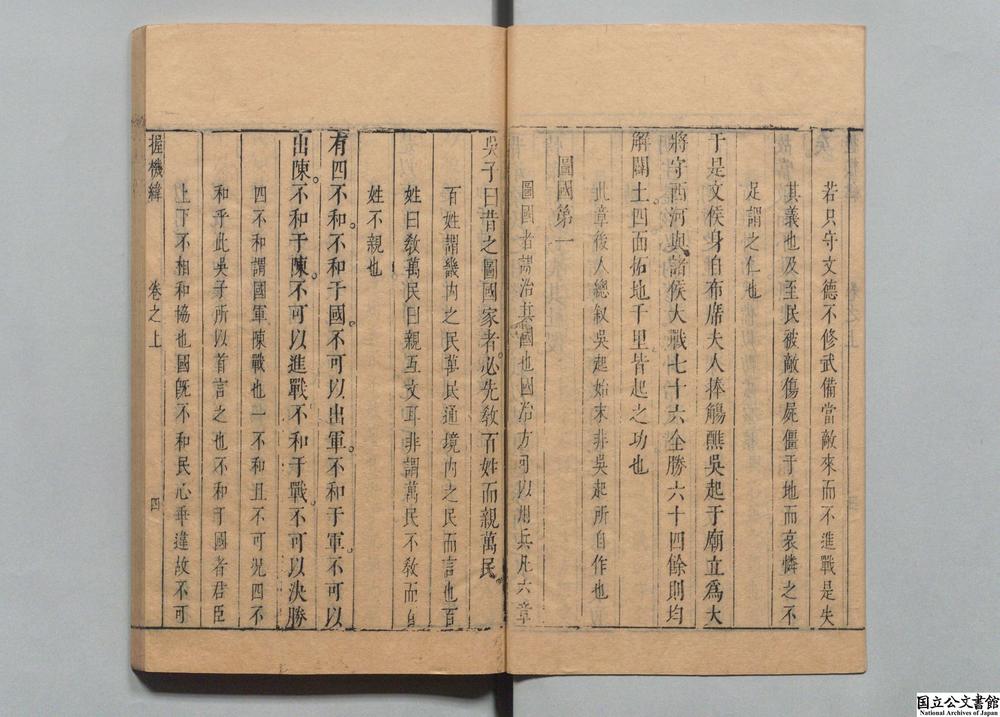 若只守文德不修武備當敵來而不進戰是失
其義也及至民被敵傷屍僵于地而哀憐之不
足謂之仁也
于是文侯身自布席夫人捧觴醮吳起于廟立爲大
將守西河與諸侯大戰七十六全勝六十四餘則均
解闢土四面拓地千里皆起之功也
此章後人總叙吳起始末非吳起所自作也
圖國第一
圖國者謂治其國也國治方可以用兵凡六章
吳子曰昔之圖國家者必先敎百姓而親萬民
百姓謂畿內之民萬民通境內之民而言也百
姓曰敎萬民曰親互文耳非謂萬民不敎而百
姓不親也
有四不和不和于國不可以出軍不和于軍不可以
出陳不和于陳不可以進戰不和于戰不可以決勝
四不和謂國軍陳戰也一不和且不可況四不
和乎此吳子所以首言之也不和于國者君臣
上下不相和協也國旣不和民心乖違故不可
握機緯 卷之上 四
国立公文書館
National Archives of Japan